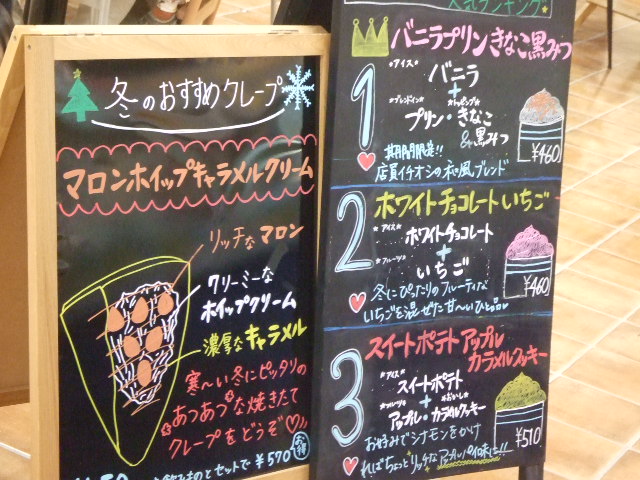 冬のおすすめクレープ
マロンホイップキャラメルクリーム
リッチなマロン
クリーミーな
ホイップクリーム
濃厚なキャラメル
寒〜い冬にピッタリの
あつあつな焼きたて
クレープをどうぞ♡
お得
セットで ¥570
人気ランキング
バニラプリンきなこ黒みつ
1
*アイス*
バニラ
+
*ブレンドイン* *トッピング*
プリン・きなこ
&黒みつ
期間限定!!
店員イチオシの和風ブレンド
¥460
2
ホワイトチョコレートいちご
*アイス*
ホワイトチョコレート
+
*フルーツ*
いちご
冬にぴったりのフルーティな
いちごを混ぜた甘〜いひと品♪
¥460
3
スイートポテトアップル
カラメルクッキー
*アイス*
スイートポテト
+
*フルーツ* *おかし*
アップル・カラメルクッキー
お好みでシナモンをかけ
ればちょっとリッチなアップルパイ味に!!
¥510